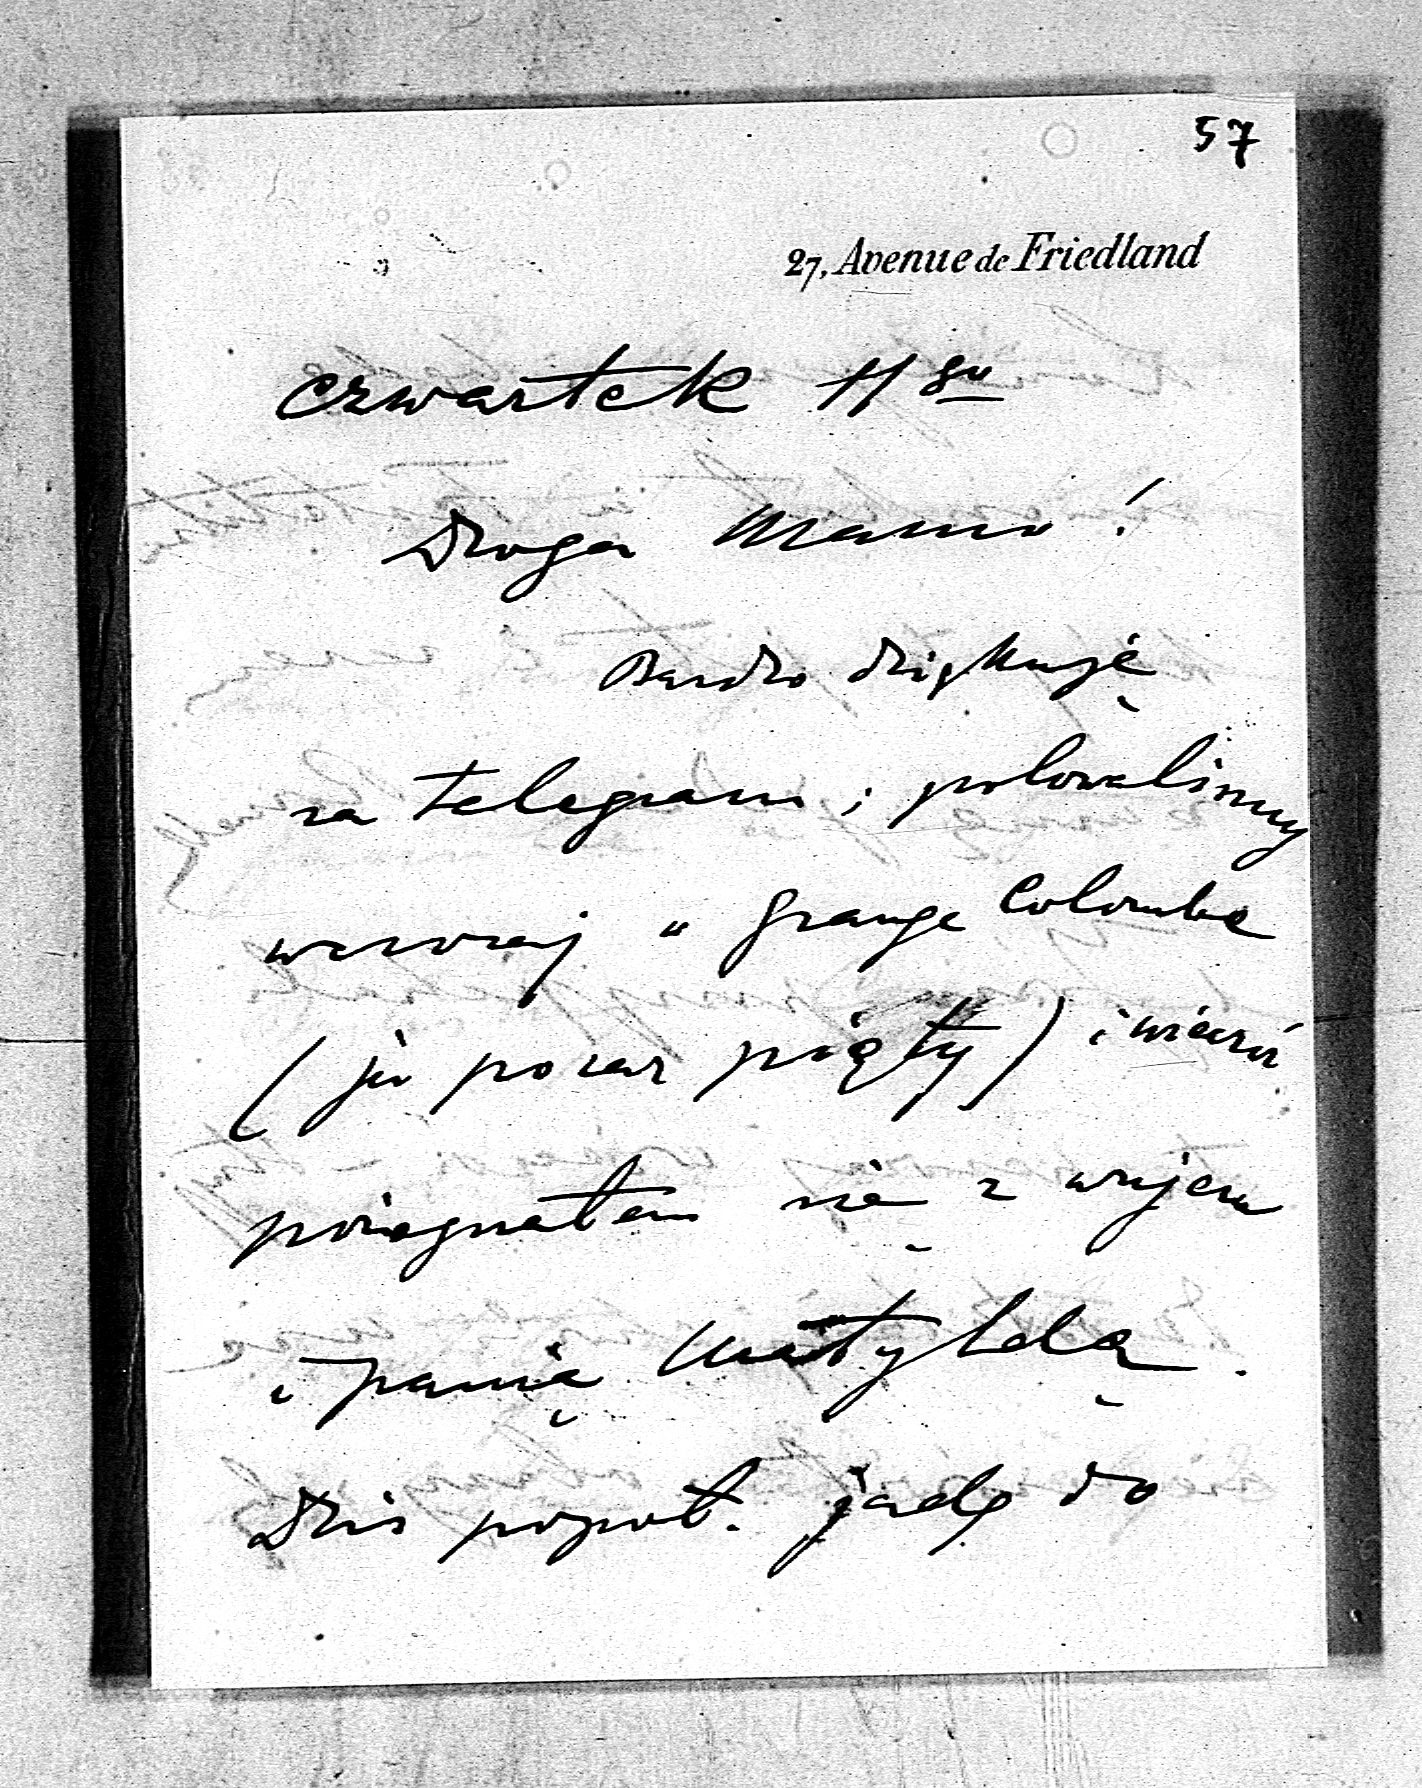 57
27, Avenue de Friedland
czwartek 11
Droga Mamo!
Bardzo dziękuję
za telegram; polowaliśmy
wczoraj w Grange Colombe
(już po raz piąty) i wieczór
pożegnałem się z wujem
i panią Matyldą.
Dziś popoł. jadę do